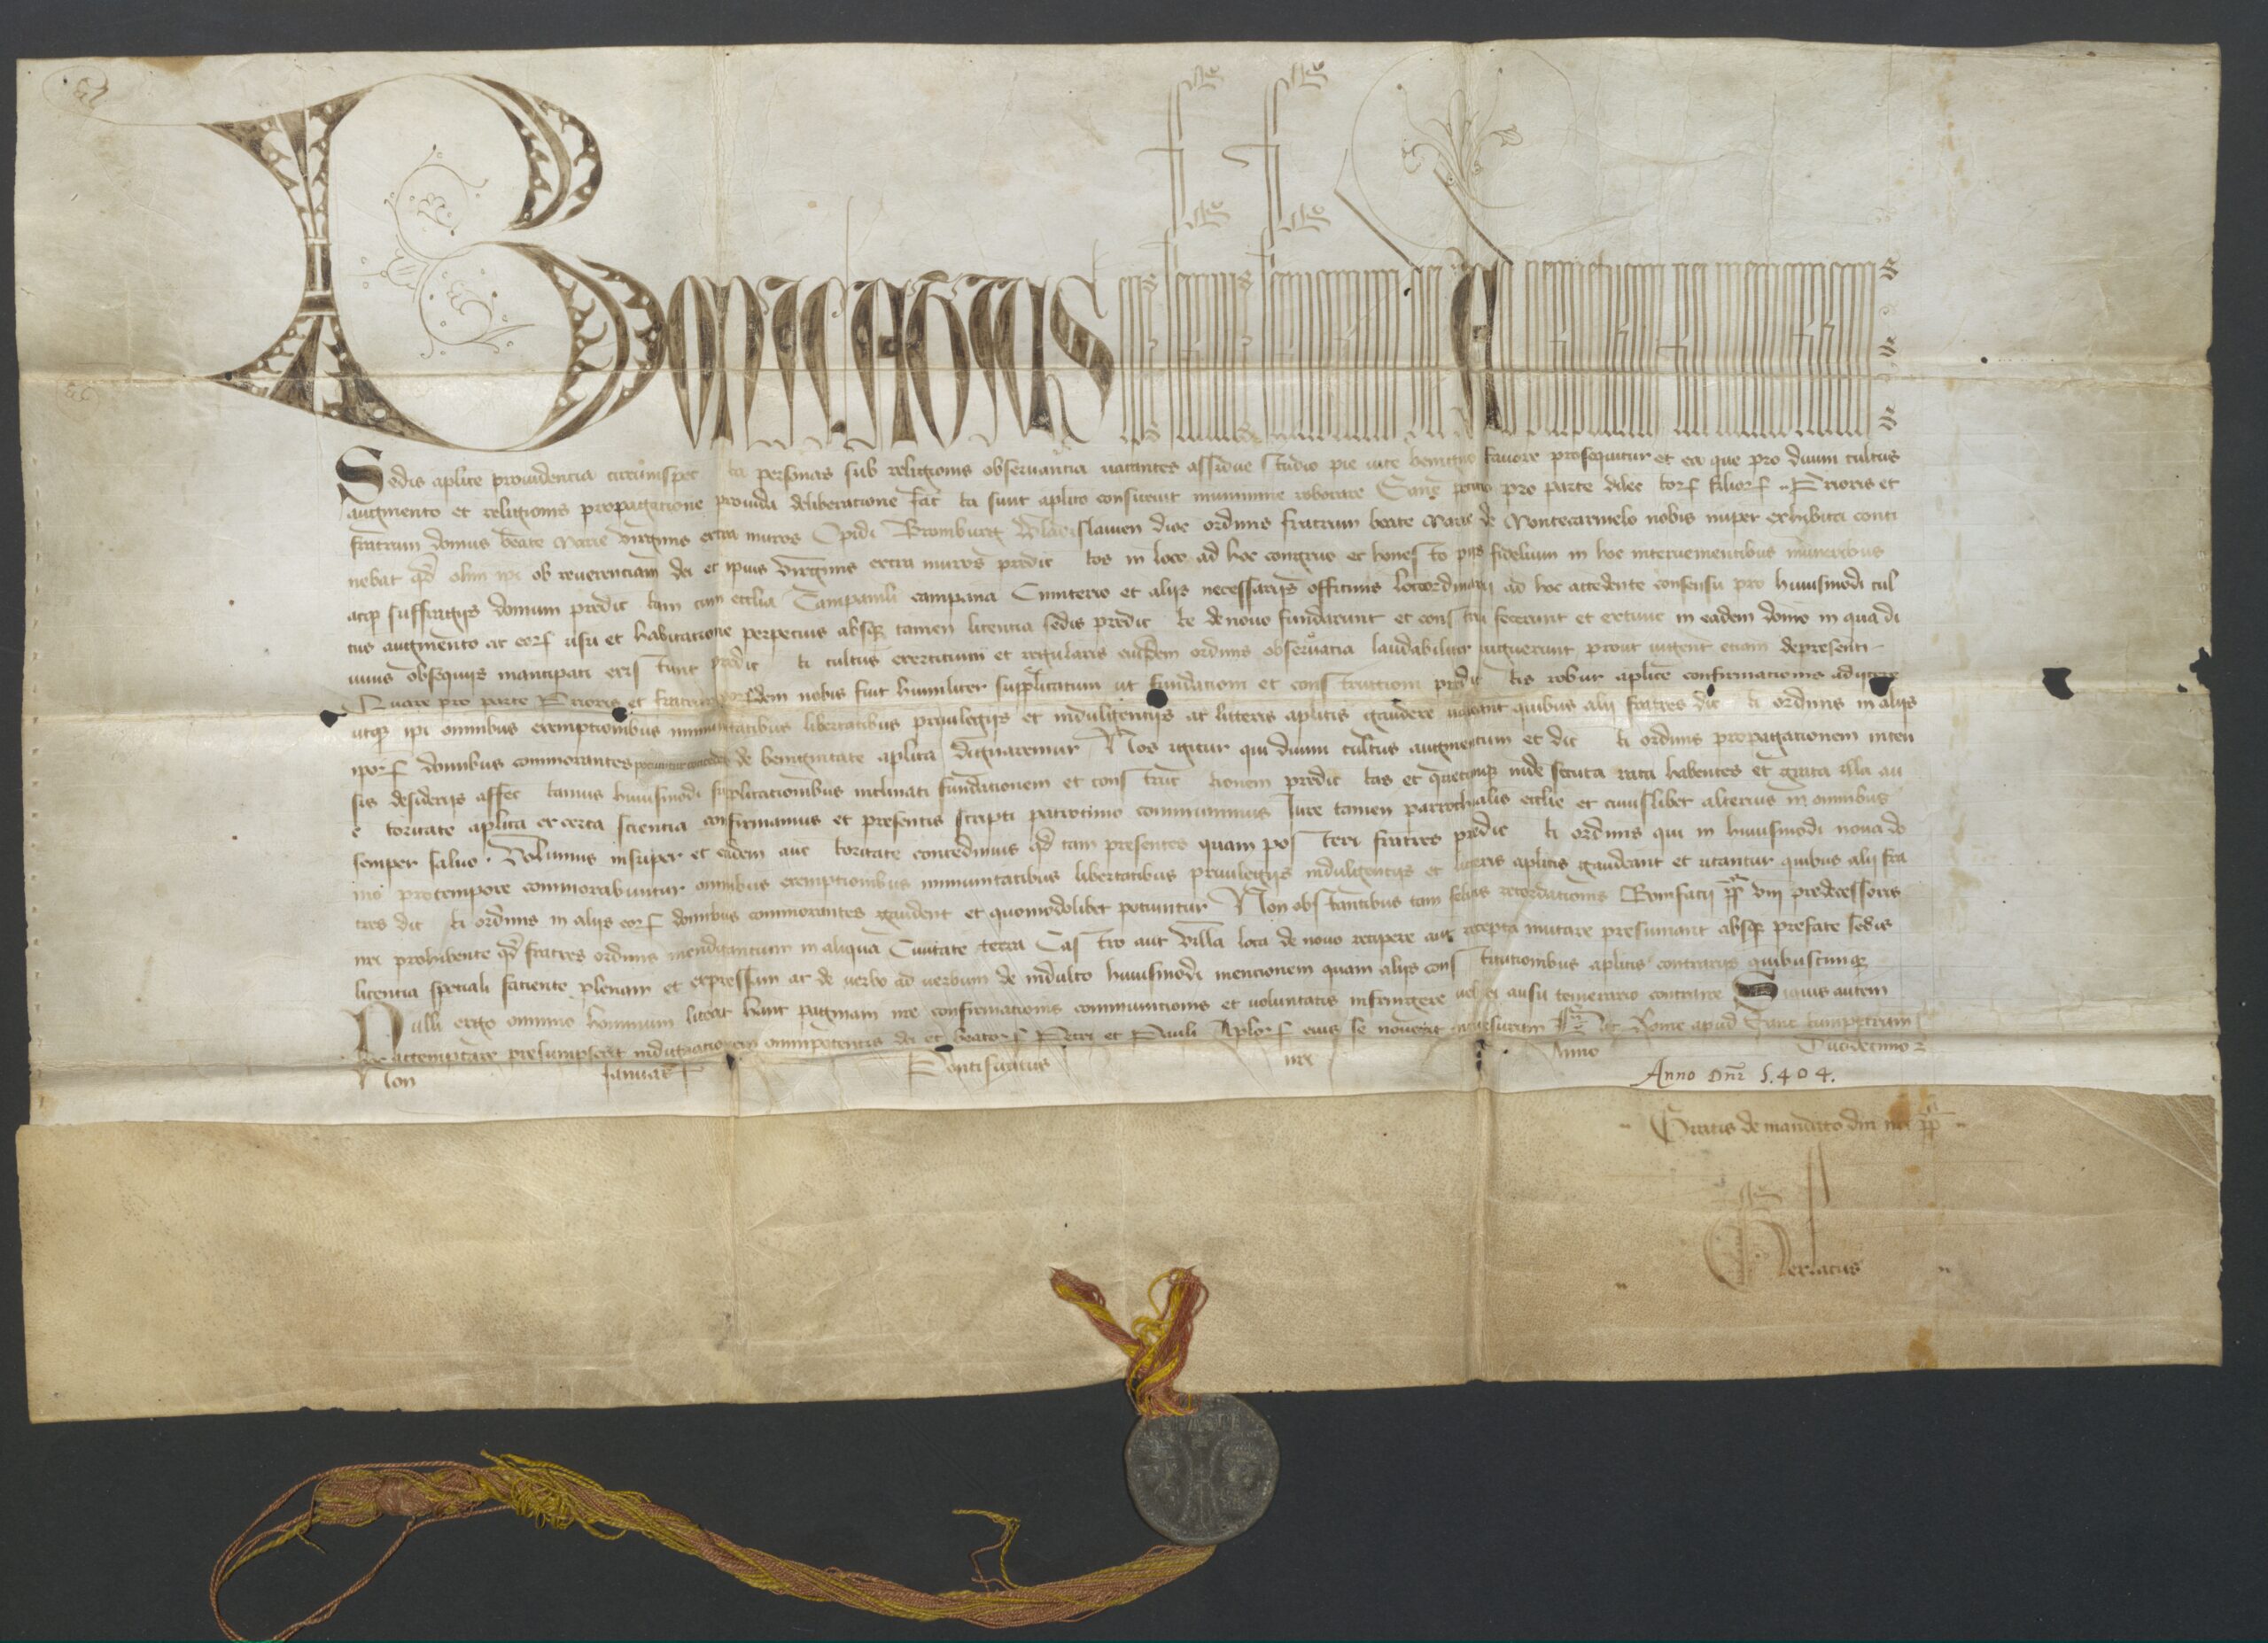 Bonifatius eps seruus seruorum dei Ad perpetuam rei memoriam
Sedis aplice prouidencia circumspec ta personas sub religionis obseruancia uacantes assidue studio pie uite benigno fauore prosequitur et ea que pro diuini cultus
augmento et religionis propagacione prouida deliberacione fac ta sunt aplico consueuit munimine roborare Sane peticio pro parte dilec torꝝ filiorꝝ Prioris et
fratrum domus beate Marie virginis extra muros Opidi Bromburg Wladislauien dioc ordinis fratrum beate Marie de Montecarmelo nobis nuper exhibita conti
nebat qd olim ipi ob reuerenciam dei et ipius virginis extra muros predic tos in loco ad hoc congruo et hones to pijs fidelium in hoc interuenientibus muneribus
acqꝫ suffragijs domum predic tam cum ecclia Campanili campana Cimiterio et alijs necessarijs officinis loci ordinarij ad hoc accedente consensu pro huiusmodi cul
tus augmento ac eorꝝ usu et habitacione perpetuis absqꝫ tamen licentia sedis predic te de nouo fundarunt et cons trui fecerunt et extunc in eadem domo in qua di
uinis obsequijs mancipati exis tunt predic ti cultus exercitium et regularis eiusdem ordinis obseruatia laudabiliter uiguerunt prout uigent etiam depresenti
Quare pro parte Prioris et fratrum eorꝝdem nobis fuit humiliter supplicatum ut fundationi et cons tructioni predic tis robur aplice confirmationis adijcere
utqꝫ ipi omnibus exemptionibus immunitatibus libertatibus priuilegijs et indulgentijs ac litteris aplicis gaudere ualeant quibus alij fratres dic ti ordinis in alijs
iporꝝ domibus commorantes potiuntur concedere de benignitate aplica dignaremur Nos igitur qui diuini cultus augmentum et dic ti ordinis propagationem inten
sis desiderijs affec tamus huiusmodi supplicationibus inclinati fundationem et cons truc tionem predic tas et quecumqꝫ inde secuta rata habentes et grata illa au
c toritate aplica ex certa scientia confirmamus et presentis scripti patrocinio communimus Iure tamen parrochialis ecclie et cuiuslibet alterius in omnibus
semper saluo Volumus insuper et eadem auc toritate concedimus qd tam presentes quam pos teri fratres predic ti ordinis qui in huiusmodi noua do
mo protempore commorabuntur omnibus exemptionibus immunitatibus libertatibus priuilegijs indulgentijs et litteris aplicis gaudeant et utantur quibus alij fra
tres dic ti ordinis in alijs eorꝝ domibus commorantes gaudent et quomodolibet potiuntur Non obs tantibus tam felicis recordationis Bonifacij pp VIII predecessoris
nri prohibente qd fratres ordinis mendicantium in aliqua Ciuitate terra Cas tro aut Villa loca de nouo recipere aut recepta mutare presumant absqꝫ prefate sedis
licentia speciali faciente plenam et expressam ac de uerbo ad uerbum de indulto huiusmodi mencionem quam alijs cons titutionibus aplicis contrarijs quibuscumqꝫ
Nulli ergo omnino hominum liceat hanc paginam nre confirmationis communicionis et voluntatis infringere uel ei ausu temerario contraire Siquis autem
hoc attemptare presumpserit indignationem omnipotentis dei et beatorꝝ Petri et Pauli Aplorꝝ eius se nouerit incursurum Dat Rome apud Sanc tumpetrum
Non Ianuarꝭ Pontificatus nri Anno Duodecimo
Anno Dnr 1404.
Gratis de mandato dni nri pp